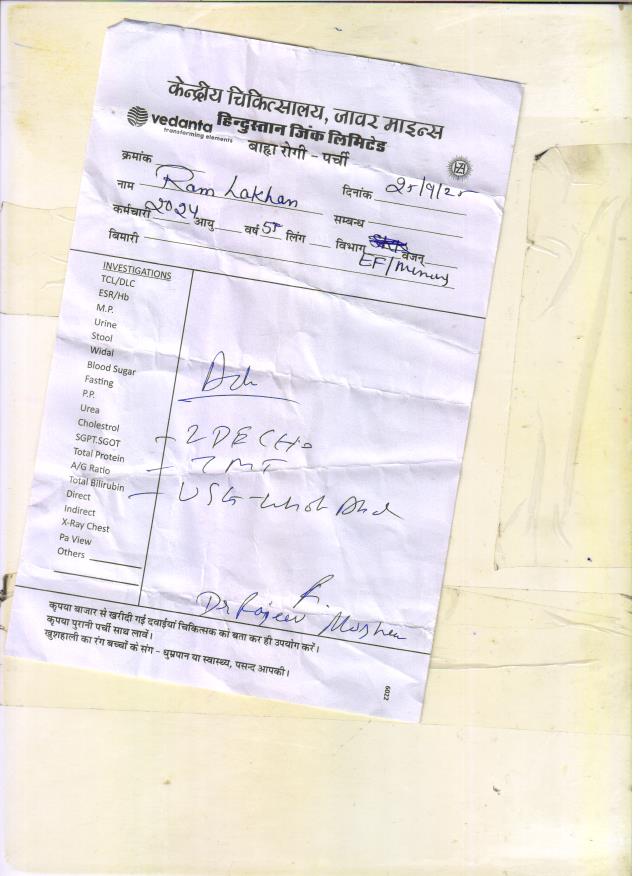 केन्द्रीय चिकित्सालय, जावर माइन्स
vedanta
transforming elements
हिन्दुस्तान जिंक लिमिटेड
बाह्य रोगी - पर्ची
क्रमांक
नाम Ram Lakhan दिनांक 25/9/25
कर्मचारी 2024 आयु वर्ष 55 लिंग सम्बन्ध
विभाग वजन
बिमारी EF/
INVESTIGATIONS
TCL/DLC
ESR/Hb
M.P.
Urine
Stool
Widal
Blood Sugar
Fasting
P.P.
Urea
Cholestrol
SGPT.SGOT
Total Protein
A/G Ratio
Total Bilirubin
Direct
Indirect
X-Ray Chest
Pa View
Others
Adv
- 2DECHO
- TMT
- USG - Abd
Dr Rajeev
कृपया बाजार से खरीदी गई दवाईयां चिकित्सक को बता कर ही उपयोग करें।
कृपया पुरानी पर्ची साथ लावें।
खुशहाली का रंग बच्चों के संग - धुम्रपान या स्वास्थ्य, पसन्द आपकी।
6022